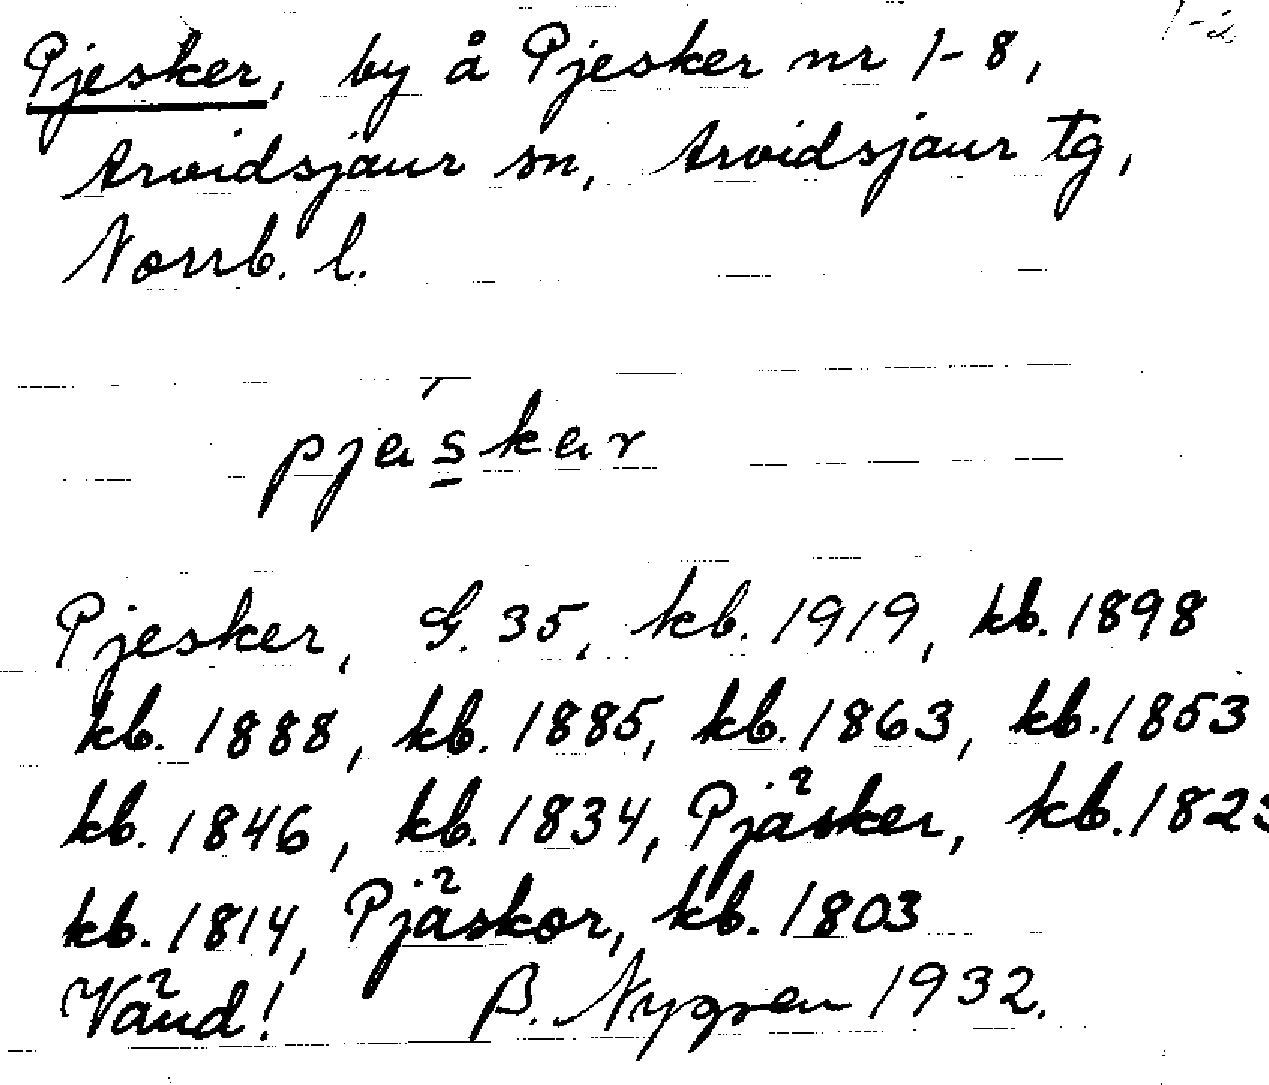 1-2
Pjesker, by å Pjesker nr 1-8,
Arvidsjaur sn, Arvidsjaur tg,
Norrb. l.
pjäskär
Pjesker, G. 35, kb. 1919, kb. 1898
kb. 1888, kb. 1885, kb. 1863, kb. 1853
kb. 1846, kb. 1834, Pjäsker, kb. 1823
kb. 1814, Pjäskor, kb. 1803
Vänd! B. Nygren 1932.